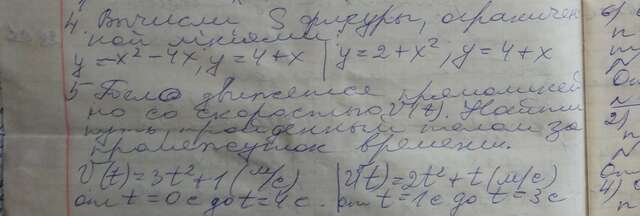 4. Вычисли S фигуры, ограничен
ной линиями:
y = x² - 4x, y = 4 + x | y = 2 + x², y = 4 + x
5 Тело движется прямолиней
но со скоростью V(t). Найти
путь, пройденный телом за
промежуток времени.
V(t) = 3t² + 1 (м/с) | V(t) = 2t² + t (м/с)
от t = 0 с до t = 4 с. | от t = 1 с до t = 3 с